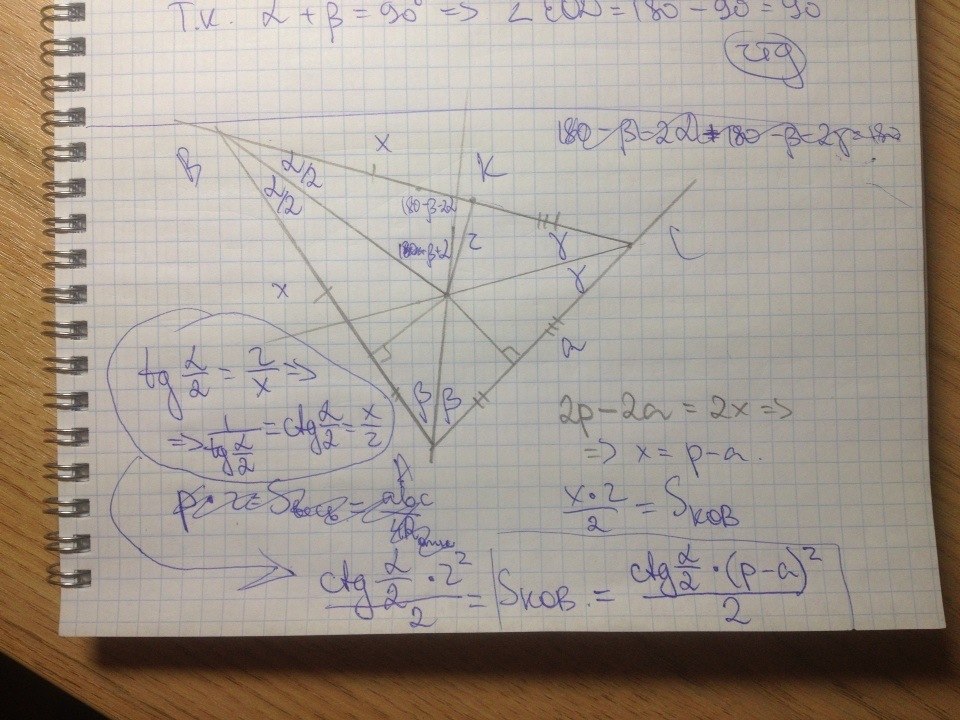 Т.к. α + β = 90° => ∠EOD = 180 - 90 = 90
чтд
180 - β - 2α + 180 - β - 2γ = 180
B
α/2
α/2
x
K
180-β-2α
r
γ
γ
C
x
a
β β
A
tg α/2 = r/x =>
=> 1/(tg α/2) = ctg α/2 = x/r
2p - 2a = 2x =>
=> x = p - a.
(x · r)/2 = Sков
(ctg α/2 · r²)/2 = Sков. = (ctg α/2 · (p-a)²)/2